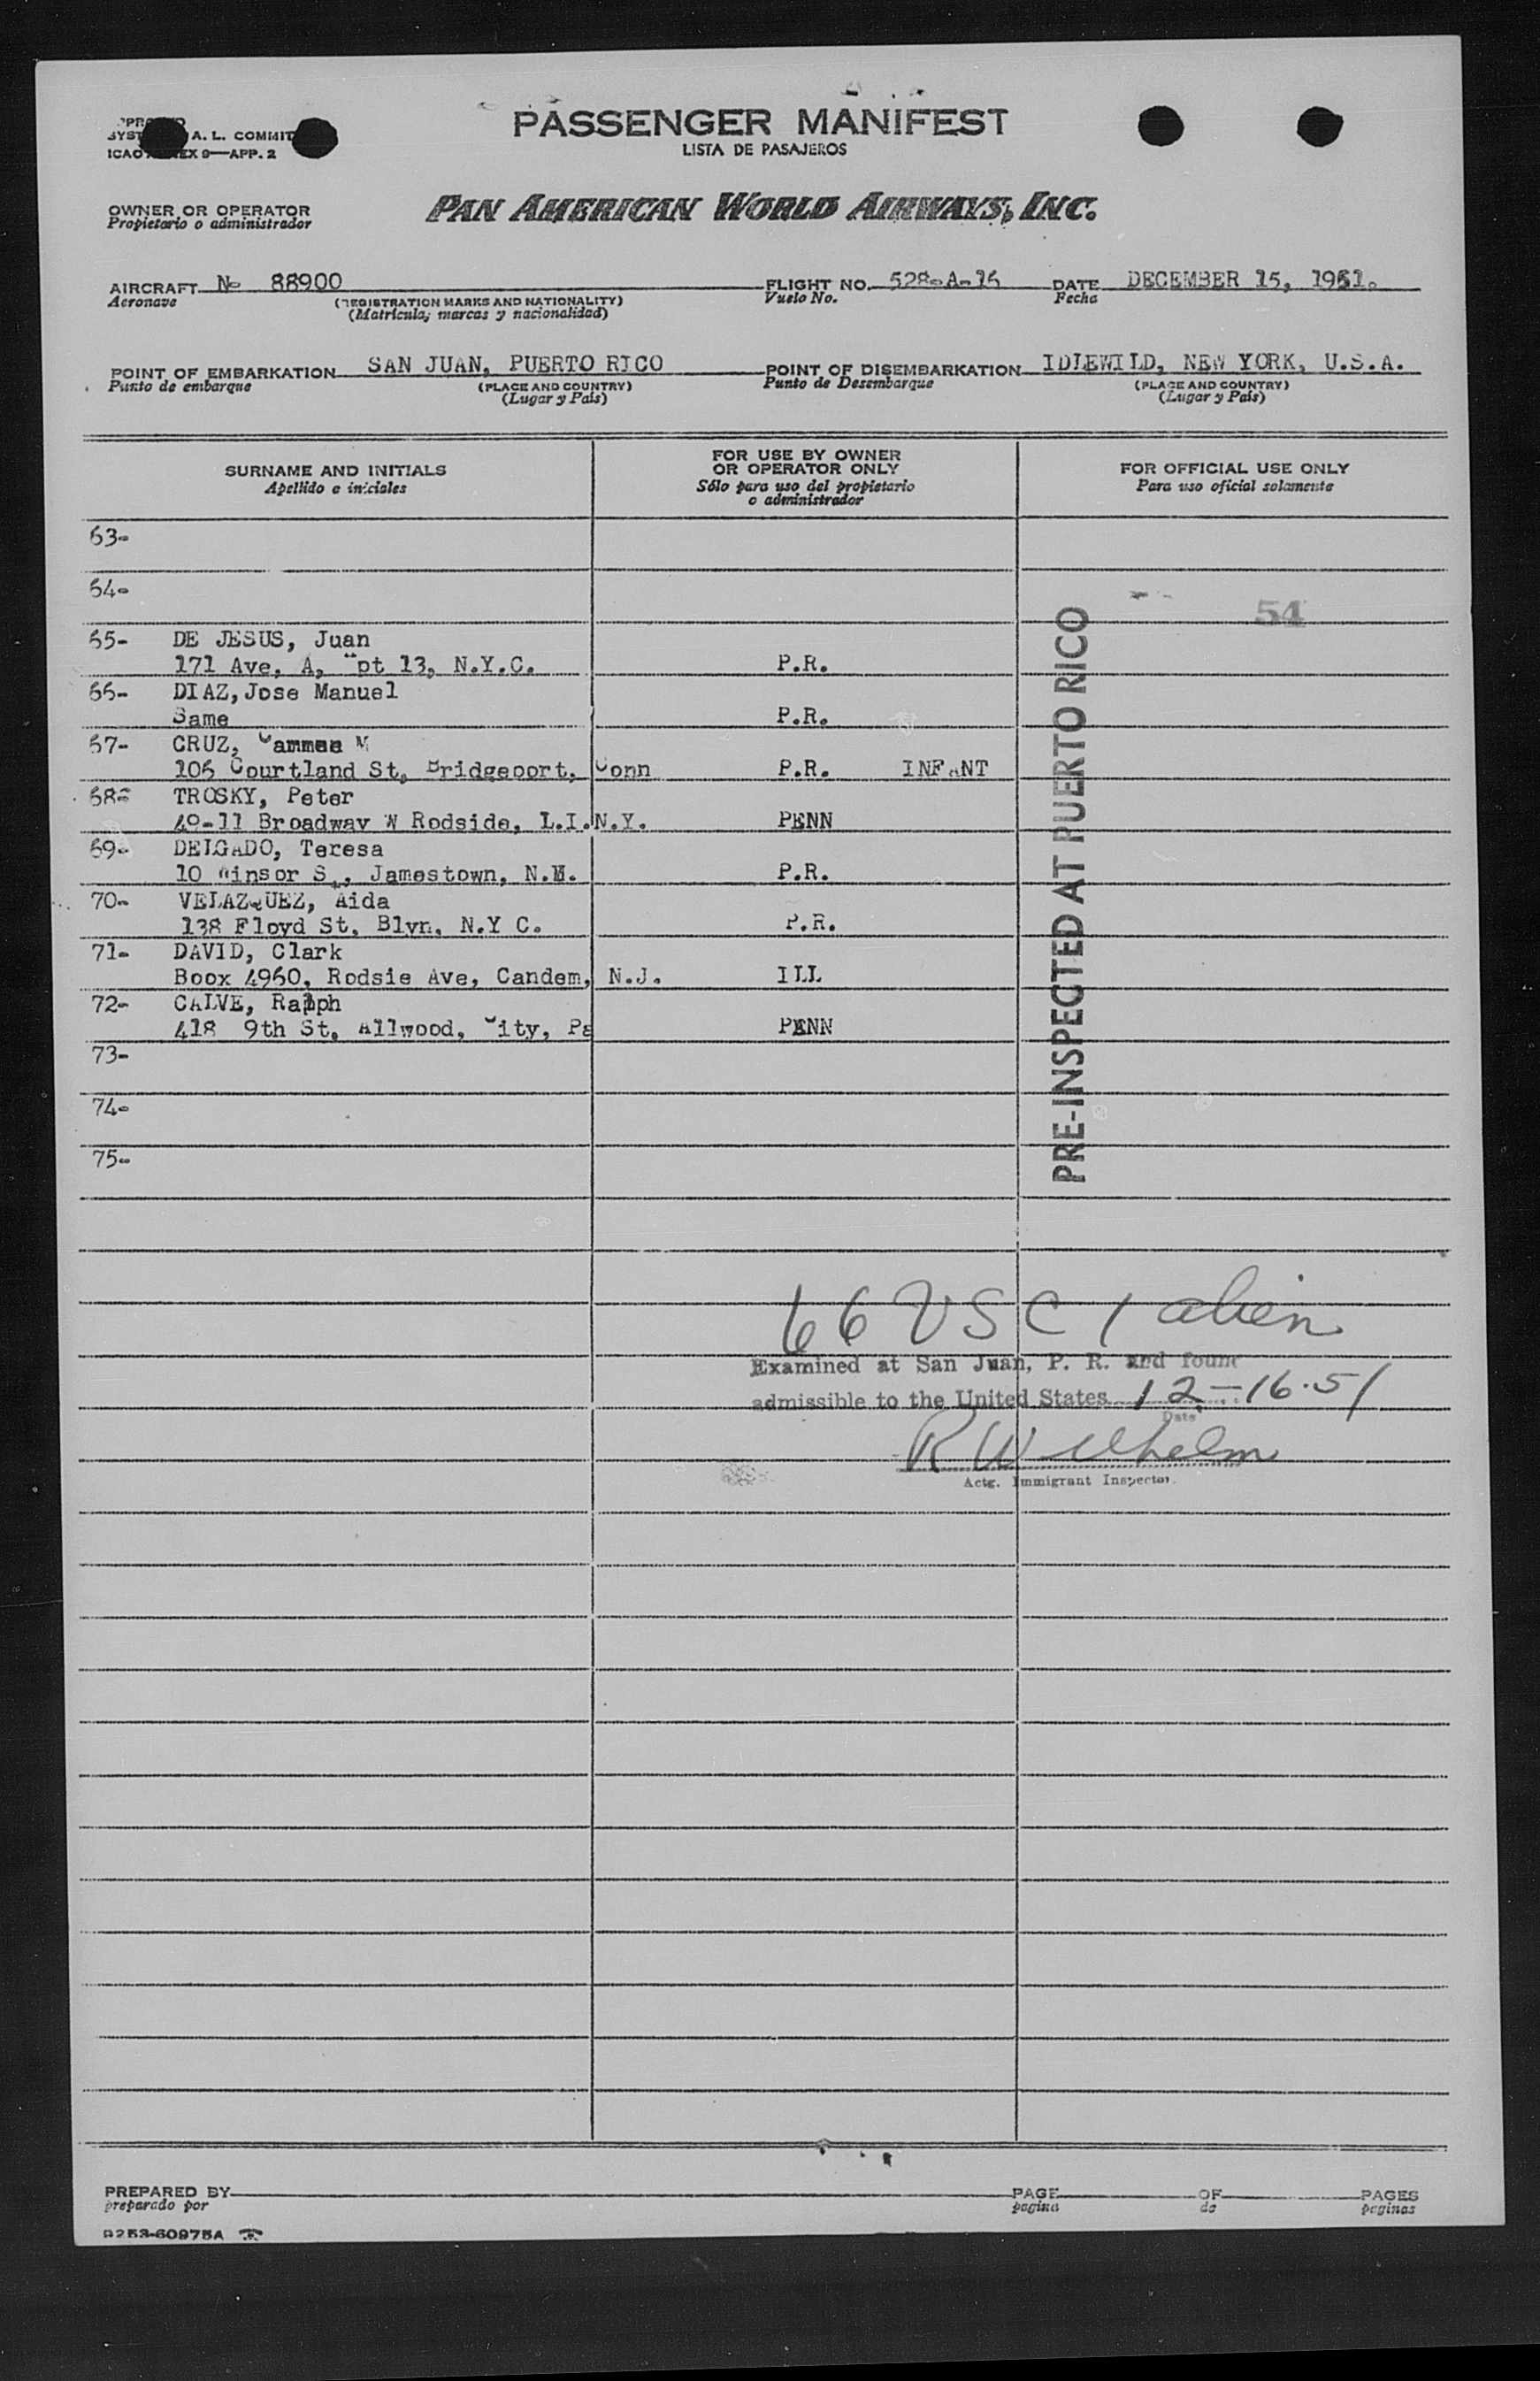 PASSENGER MANIFEST
LISTA DE PASAJEROS
A. L. COMMIT
ICAO 9—APP. 2
OWNER OR OPERATOR
Propietario o administrador
PAN AMERICAN WORLD AIRWAYS, INC.
AIRCRAFT No 88900 FLIGHT NO. 528-A-16 DATE DECEMBER 15, 1951.
Aeronave (REGISTRATION MARKS AND NATIONALITY) Vuelo No. Fecha
(Matricula; marcas y nacionalidad)
POINT OF EMBARKATION SAN JUAN, PUERTO RICO POINT OF DISEMBARKATION IDLEWILD, NEW YORK, U.S.A.
Punto de embarque (PLACE AND COUNTRY) Punto de Desembarque (PLACE AND COUNTRY)
(Lugar y País) (Lugar y País)
SURNAME AND INITIALS
Apellido e iniciales
FOR USE BY OWNER
OR OPERATOR ONLY
Sólo para uso del propietario
o administrador
FOR OFFICIAL USE ONLY
Para uso oficial solamente
63-
64-
54
65- DE JESUS, Juan
171 Ave, A, pt 13, N.Y.C. P.R.
66- DIAZ, Jose Manuel
Same P.R.
67- CRUZ, M
106 Courtland St, Bridgeport, Conn P.R. INFANT
68- TROSKY, Peter
49-11 Broadway W Rodside, L.I.N.Y. PENN
69- DELGADO, Teresa
10 Winsor S , Jamestown, P.R.
70- VELAZQUEZ, Aida
138 Floyd St, Blyn, N.Y C. P.R.
71- DAVID, Clark
Boox 4960, Rodsie Ave, Candem, N.J. ILL
72- CALVE, Ralph
418 9th St, Allwood, City, Pa PENN
73-
74-
75-
PRE-INSPECTED AT PUERTO RICO
66 USC 1 alien
Examined at San Juan, P. R. and found
admissible to the United States 12-16-51
Date
R Wilhelm
Actg. Immigrant Inspector.
PREPARED BY PAGE OF PAGES
preparado por pagina de paginas
9253-60975A